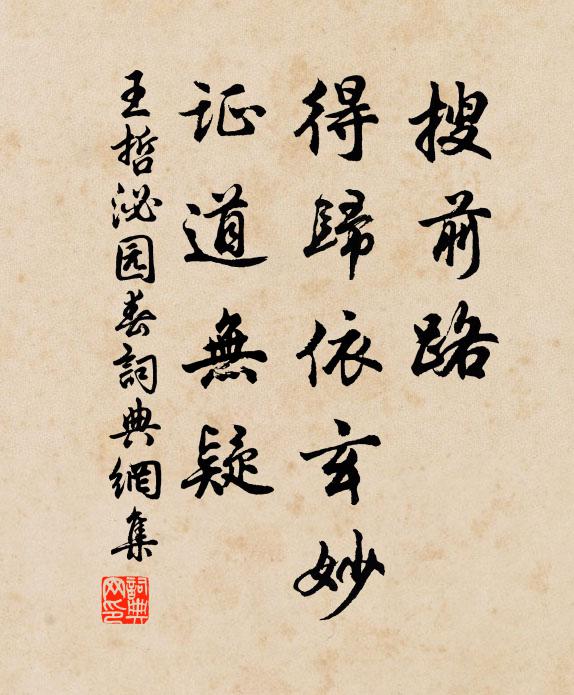 搜前路
得歸依玄妙
证道無疑
王哲泌园春詞典網集
詞典网印